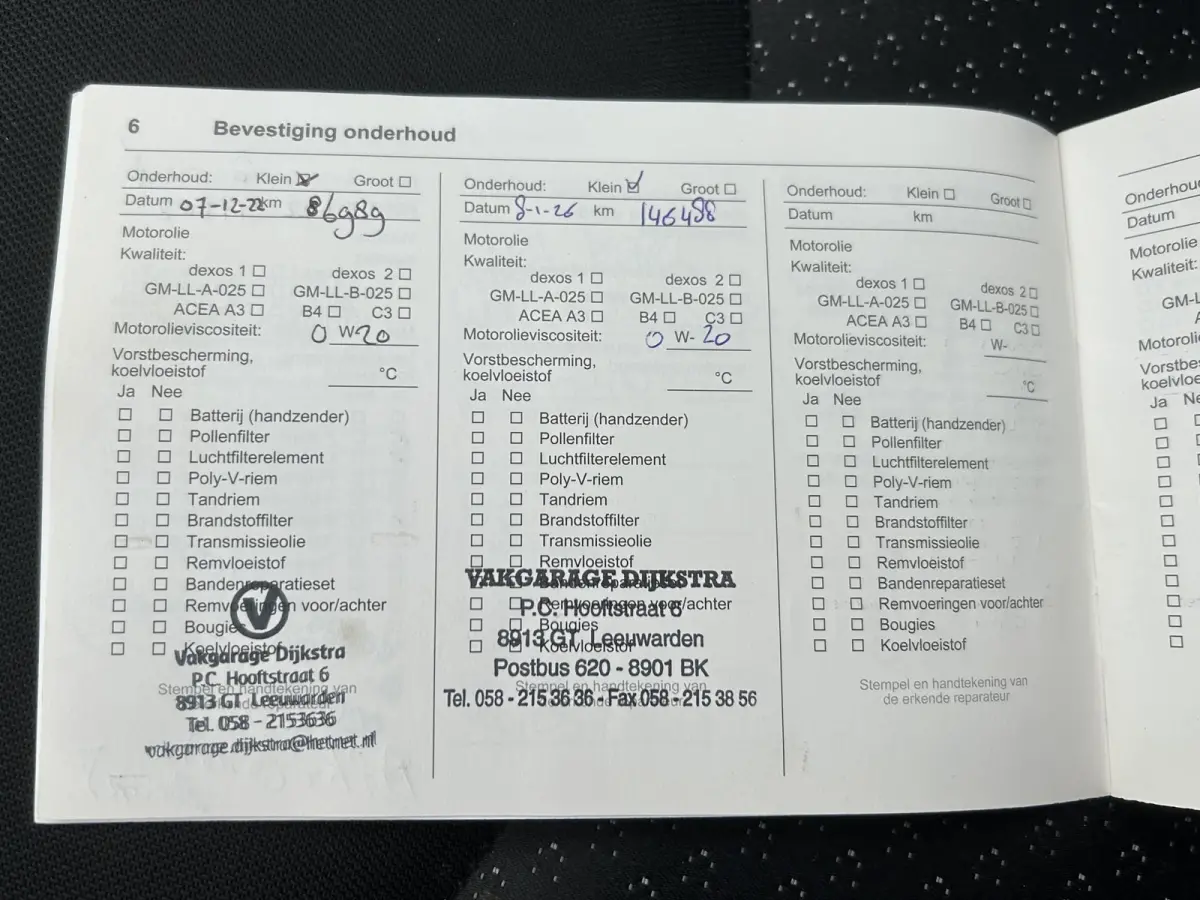 6 Bevestiging onderhoud
Onderhoud: Klein Groot
Datum 07-12-22 km 86989
Motorolie
Kwaliteit:
dexos 1 dexos 2
GM-LL-A-025 GM-LL-B-025
ACEA A3 B4 C3
Motorolieviscositeit: 0 W-20
Vorstbescherming,
koelvloeistof °C
Ja Nee
Batterij (handzender)
Pollenfilter
Luchtfilterelement
Poly-V-riem
Tandriem
Brandstoffilter
Transmissieolie
Remvloeistof
Bandenreparatieset
Remvoeringen voor/achter
Bougies
Koelvloeistof
Stempel en handtekening van
de erkende reparateur
V
Vakgarage Dijkstra
P.C. Hooftstraat 6
8913 GT Leeuwarden
Tel. 058 - 2153636
vakgarage.dijkstra@hetnet.nl
Onderhoud: Klein Groot
Datum 8-1-26 km 146488
Motorolie
Kwaliteit:
dexos 1 dexos 2
GM-LL-A-025 GM-LL-B-025
ACEA A3 B4 C3
Motorolieviscositeit: 0 W-20
Vorstbescherming,
koelvloeistof °C
Ja Nee
Batterij (handzender)
Pollenfilter
Luchtfilterelement
Poly-V-riem
Tandriem
Brandstoffilter
Transmissieolie
Remvloeistof
Bandenreparatieset
Remvoeringen voor/achter
Bougies
Koelvloeistof
Stempel en handtekening van
de erkende reparateur
VAKGARAGE DIJKSTRA
P.C. Hooftstraat 6
8913 GT Leeuwarden
Postbus 620 - 8901 BK
Tel. 058 - 215 36 36 - Fax 058 - 215 38 56
Onderhoud: Klein Groot
Datum km
Motorolie
Kwaliteit:
dexos 1 dexos 2
GM-LL-A-025 GM-LL-B-025
ACEA A3 B4 C3
Motorolieviscositeit: W-
Vorstbescherming,
koelvloeistof °C
Ja Nee
Batterij (handzender)
Pollenfilter
Luchtfilterelement
Poly-V-riem
Tandriem
Brandstoffilter
Transmissieolie
Remvloeistof
Bandenreparatieset
Remvoeringen voor/achter
Bougies
Koelvloeistof
Stempel en handtekening van
de erkende reparateur
Datum
Motorolie
Kwaliteit:
Ja